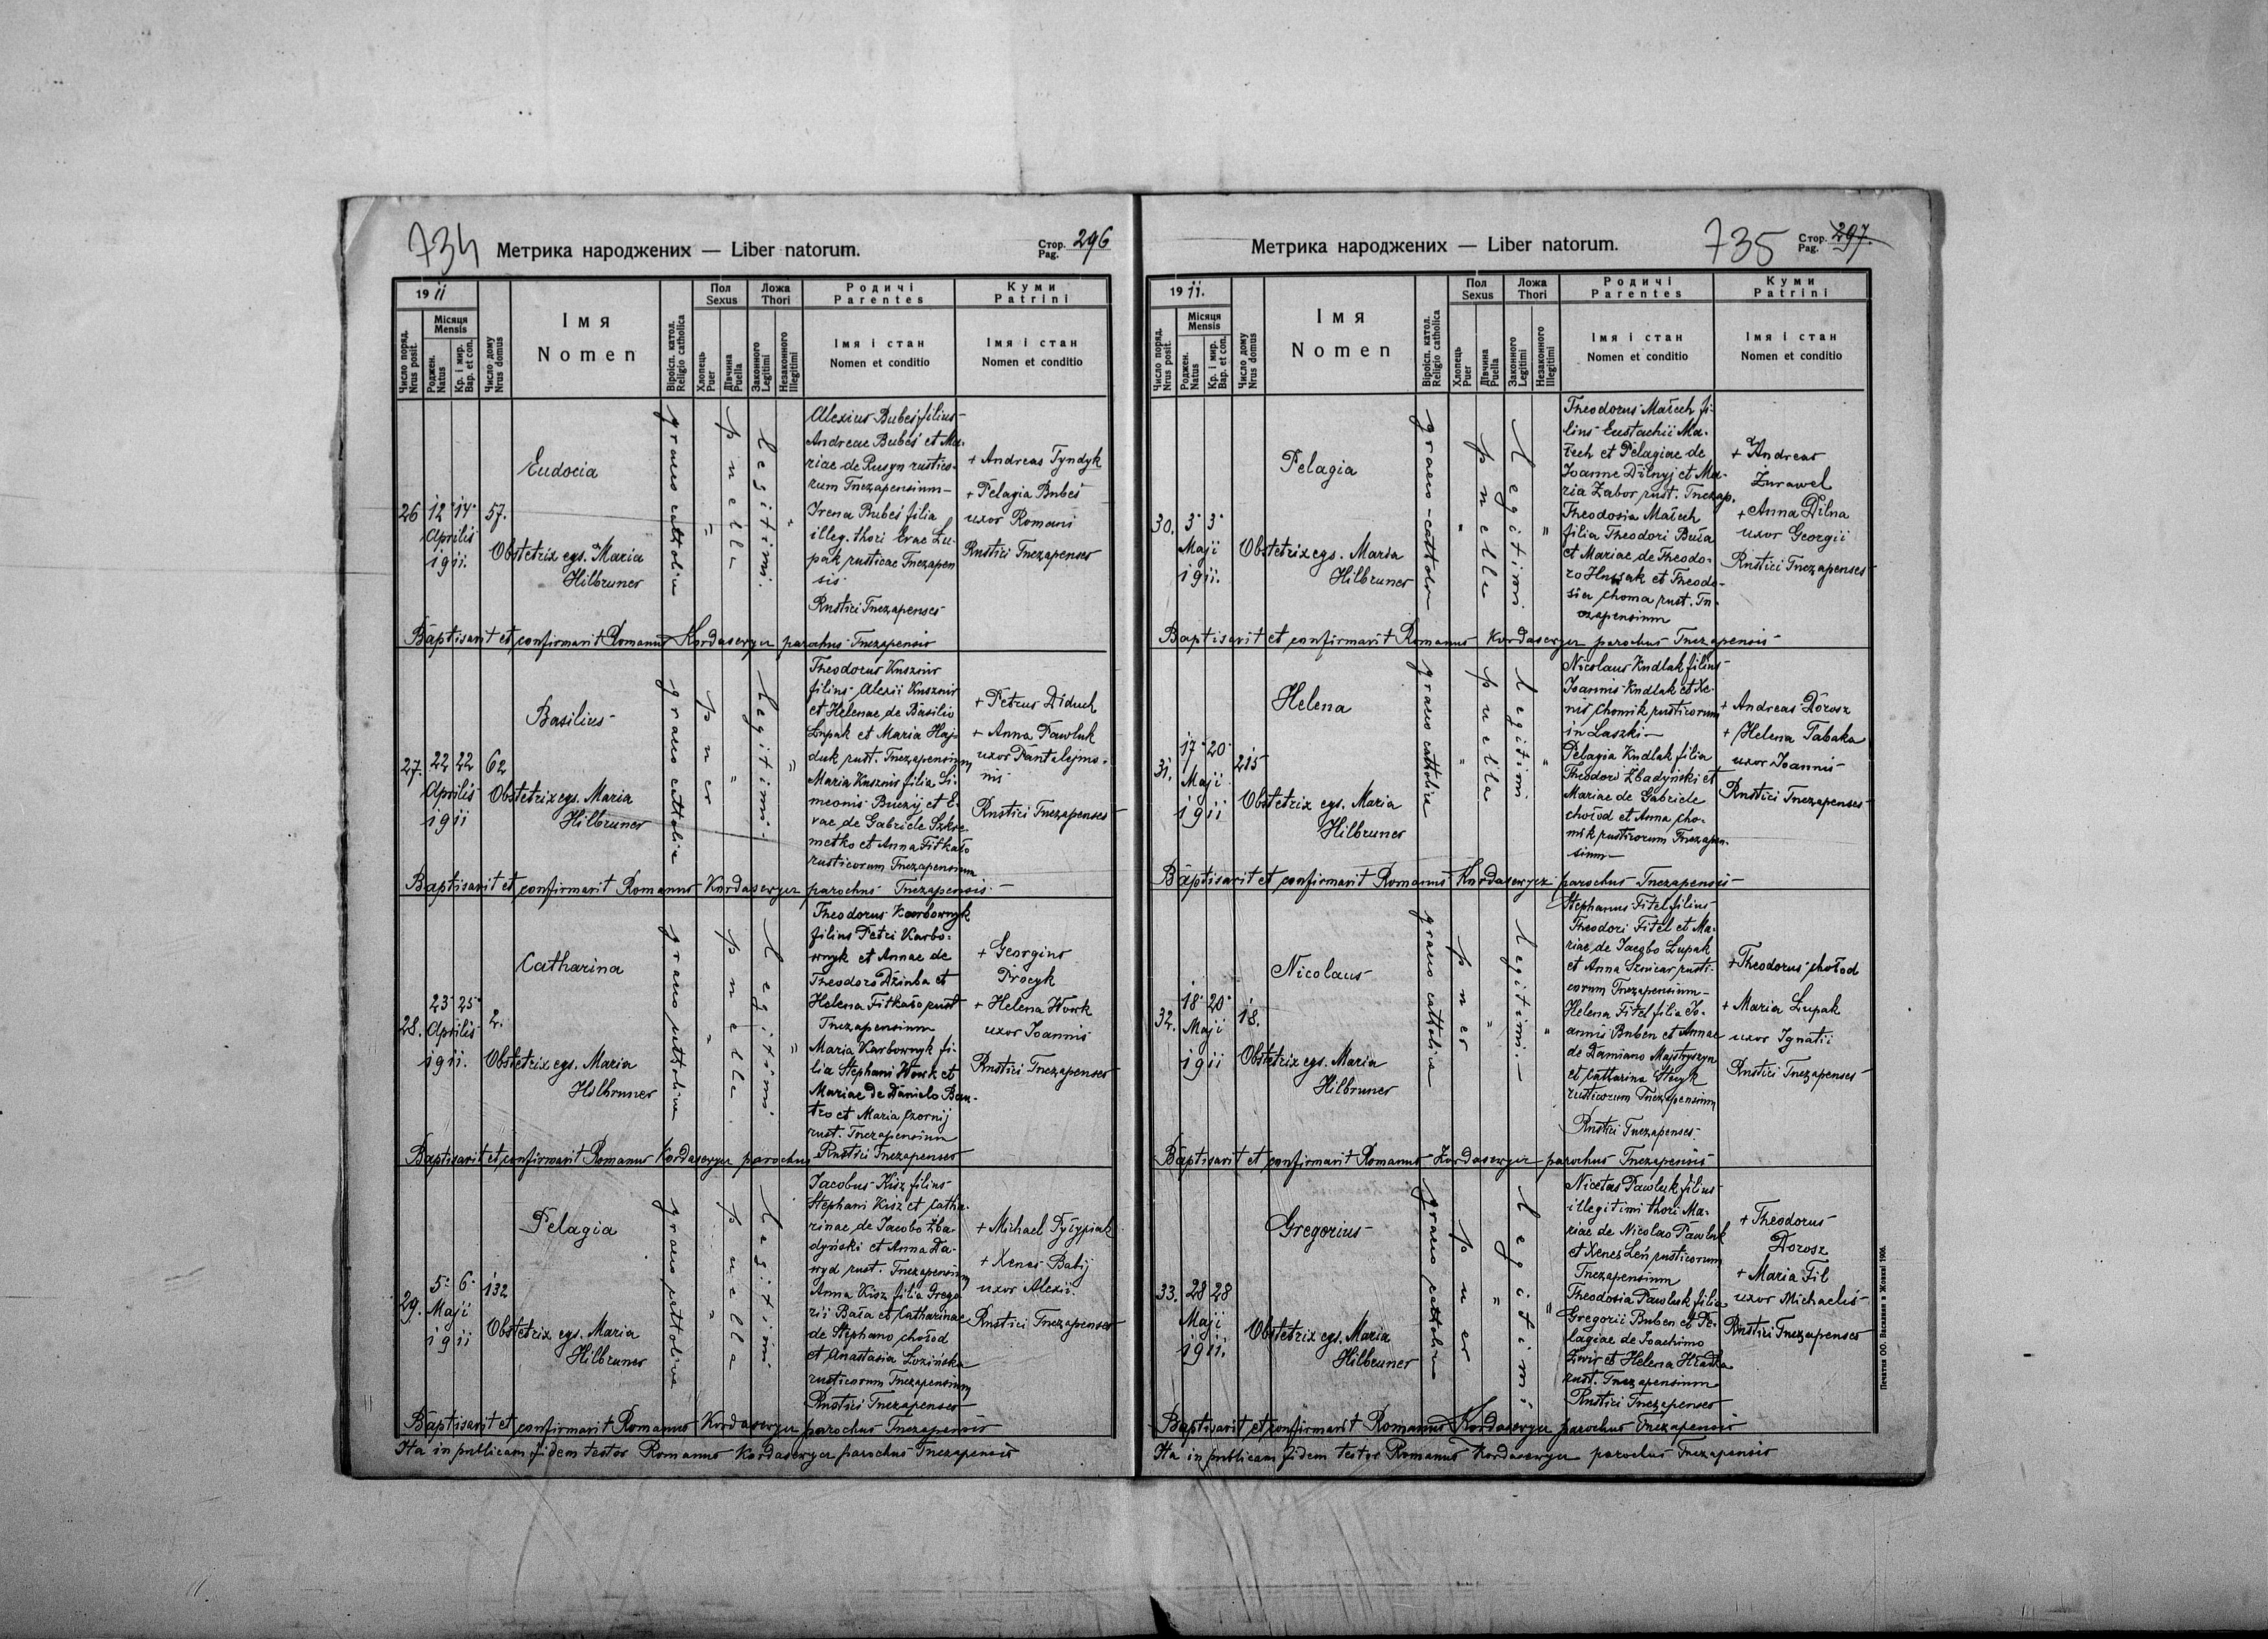 734 Метрика народжених — Liber natorum. Стор. Pag. 296
19 11
Число поряд. Nrus posit.
Місяця Mensis
Роджен. Natus
Кр. і мир. Bap. et con.
Число дому Nrus domus
Імя
Nomen
Віроісп. катол. Religio catholica
Пол Sexus
Хлопець Puer
Дївчина Puella
Ложа Thori
Законного Legitimi
Незаконного Illegitimi
Родичі Parentes
Імя і стан
Nomen et conditio
Куми Patrini
Імя і стан
Nomen et conditio
26 12 14 Aprilis 1911. 57.
Eudocia
Obstetrix egs. Maria
Hilbruner
graeco catholica
puella
legitimi.
Alexius Bubeś filius
Andreae Bubeś et Ma-
riae de Rusyn rustico-
rum Tnezapensium
Irena Bubeś filia
illeg. thori Irae Łu-
pak rusticae Tnezapen
sis
Rustici Tnezapenses
+ Andreas Tyndyk
+ Pelagia Bubeś
uxor Romani
Rustici Tnezapenses
Baptisavit et confirmavit Romanus Kordasewycz parochus Tnezapensis
27. 22 22 Aprilis 1911 62
Basilius
Obstetrix egs. Maria
Hilbruner
graeco catholica
puer
legitimi
Theodorus Kusznir
filius Alexii Kusznir
et Helenae de Basilio
Łupak et Maria Haj-
duk rust. Tnezapensium
Maria Kusznir filia Si-
meonis Buczij et E-
vae de Gabriele Szkre-
metko et Anna Fitkało
rusticorum Tnezapensium
+ Petrus Diduch
+ Anna Pawluk
uxor Pantalejmo-
nis
Rustici Tnezapenses
Baptisavit et confirmavit Romanus Kordasewycz parochus Tnezapensis
28. 23 25 Aprilis 1911. 2.
Catharina
Obstetrix egs. Maria
Hilbruner
graeco catholica
puella
legitimi
Theodorus Karbownyk
filius Petri Karbo-
wnyk et Annae de
Theodoro Dżinba et
Helena Fitkało rust
Tnezapensium
Maria Karbownyk fi-
lia Stephani Wowk et
Mariae de Danielo Bau-
tro et Maria Czornij
rust. Tnezapensium
Rustici Tnezapenses
+ Georgius
Procyk
+ Helena Wowk
uxor Joannis
Rustici Tnezapenses
Baptisavit et confirmavit Romanus Kordasewycz parochus
29. 5 6 Maji 1911 132
Pelagia
Obstetrix egs. Maria
Hilbruner
graeco catholica
puella
legitimi
Jacobus Kisz filius
Stephani Kisz et Catha-
rinae de Jacobo Zba-
dyński et Anna Da-
wyd rust. Tnezapensium
Anna Kisz filia Grego
rii Bała et Catharinae
de Stephano Chołod
et Anastasia Łozińska
rusticorum Tnezapensium
Rustici Tnezapenses
+ Michael Pyłypiak
+ Xenes Babij
uxor Alexii.
Rustici Tnezapenses
Baptisavit et confirmavit Romanus Kordasewycz parochus Tnezapensis
Ita in publicam fidem testor Romanus Kordasewycz parochus Tnezapensis
Метрика народжених — Liber natorum. 735 Стор. Pag. 297.
19 11.
Число поряд. Nrus posit.
Місяця Mensis
Роджен. Natus
Кр. і мир. Bap. et con.
Число дому Nrus domus
Імя
Nomen
Віроісп. катол. Religio catholica
Пол Sexus
Хлопець Puer
Дївчина Puella
Ложа Thori
Законного Legitimi
Незаконного Illegitimi
Родичі Parentes
Імя і стан
Nomen et conditio
Куми Patrini
Імя і стан
Nomen et conditio
30. 3 3 Maji 1911.
Pelagia
Obstetrix egs. Maria
Hilbruner
graeco-catholica
puella
legitimi
Theodorus Małech fi-
lius Eustachii Ma-
łech et Pelagiae de
Joanne Dilnyj et Ma-
ria Zabor rust. Tnezap.
Theodosia Małech
filia Theodori Buła
et Mariae de Theodo-
ro Hussak et Theodo-
sia Choma rust. Tn-
ezapensium
+ Andreas
Żurawel
+ Anna Dilna
uxor Georgii
Rustici Tnezapenses
Baptisavit et confirmavit Romanus Kordasewycz parochus Tnezapensis
31. 17 20 Maji 1911 215
Helena
Obstetrix egs. Maria
Hilbruner
graeco catholica
puella
legitimi
Nicolaus Kudlak filius
Joannis Kudlak et Xe-
nis Chomik rusticorum
in Laszki
Pelagia Kudlak filia
Theodori Zbadyński et
Mariae de Gabriele
Chołod et Anna Cho-
mik rusticorum Tnezapen-
sium
+ Andreas Dorosz
+ Helena Tabaka
uxor Joannis
Rustici Tnezapenses
Baptisavit et confirmavit Romanus Kordasewycz parochus Tnezapensis
32. 18 20 Maji 1911 18.
Nicolaus
Obstetrix egs. Maria
Hilbruner
graeco catholica
puer
legitimi
Stephanus Fitel filius
Theodori Fitel et Ma-
riae de Jacobo Łupak
et Anna Sznicar rusti-
corum Tnezapensium
Helena Fitel filia Jo-
annis Buben et Annae
de Damiano Majstryszyn
et Catharina Stecyk
rusticorum Tnezapensium
Rustici Tnezapenses
+ Theodorus Chołod
+ Maria Łupak
uxor Ignatii
Rustici Tnezapenses
Baptisavit et confirmavit Romanus Kordasewycz parochus Tnezapensis
33. 28 28 Maji 1911.
Gregorius
Obstetrix egs. Maria
Hilbruner
graeco catholica
puer
legitimi
Nicetas Pawluk filius
illegitimi thori Ma-
riae de Nicolao Pawluk
et Xenes Leń rusticorum
Tnezapensium
Theodosia Pawluk filia
Gregorii Buben et Pe-
lagiae de Joachimo
Żwir et Helena Hradka
rust. Tnezapensium
Rustici Tnezapenses
+ Theodorus
Dorosz
+ Maria Fil
uxor Michaelis
Rustici Tnezapenses
Baptisavit et confirmavit Romanus Kordasewycz parochus Tnezapensis
Ita in publicam fidem testor Romanus Kordasewycz parochus Tnezapensis
Печатня ОО. Василиян в Жовкві 1906.